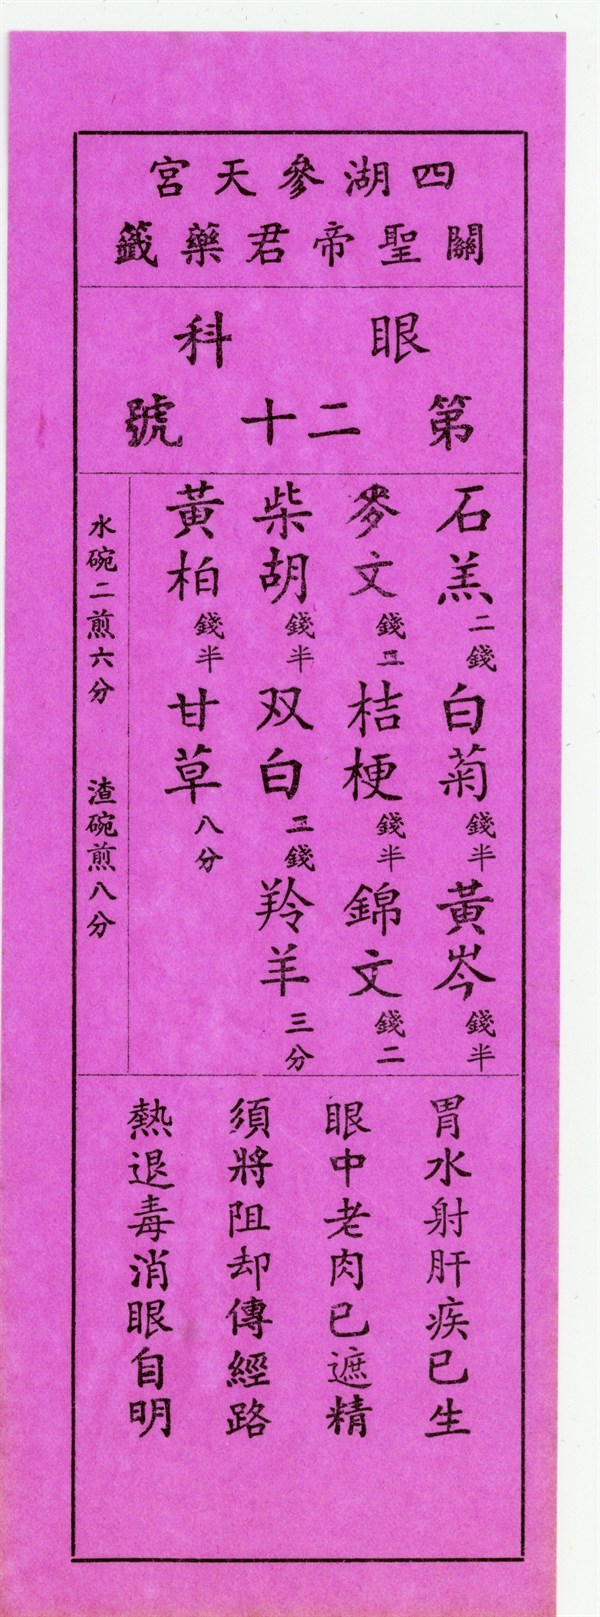 四湖參天宮
關聖帝君藥籤
眼科
第二十號
石羔二錢 白菊錢半 黃岑錢半
麥文錢二 桔梗錢半 錦文錢二
柴胡錢半 双白二錢 羚羊三分
黃柏錢半 甘草八分
水碗二煎六分 渣碗煎八分
胃水射肝疾已生
眼中老肉已遮精
須將阻却傳經路
熱退毒消眼自明